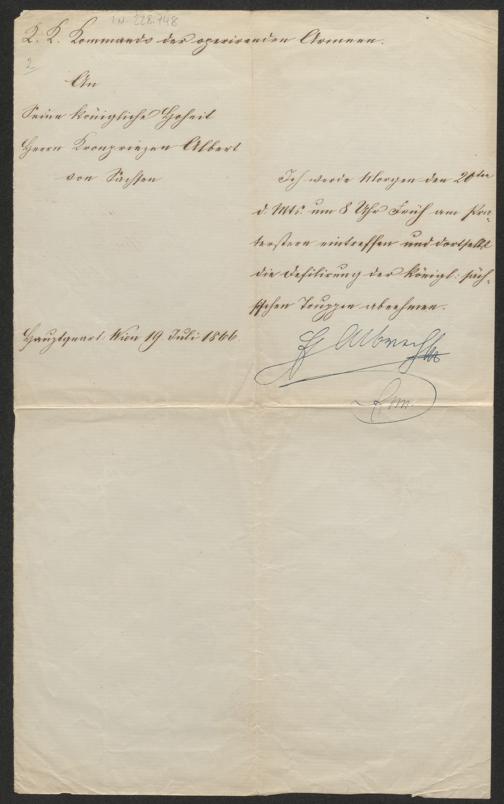 IN-228.748
K. K. Kommando der operirenden Armeen.
2
An
Seine königliche Hoheit
Herrn Kronprinzen Albert
von Sachsen
Ich werde Morgen den 20ten
d. Mts. um 8 Uhr Früh am Pra-
terstern eintreffen und dortselbst
die Defilirung der königl: säch-
sischen Truppen abnehmen.
Hauptquart. Wien 19 Juli 1866.
EH Albrecht
FM.